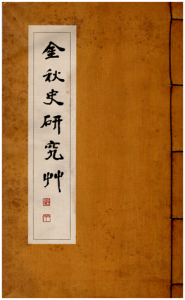 金秋史研究艸